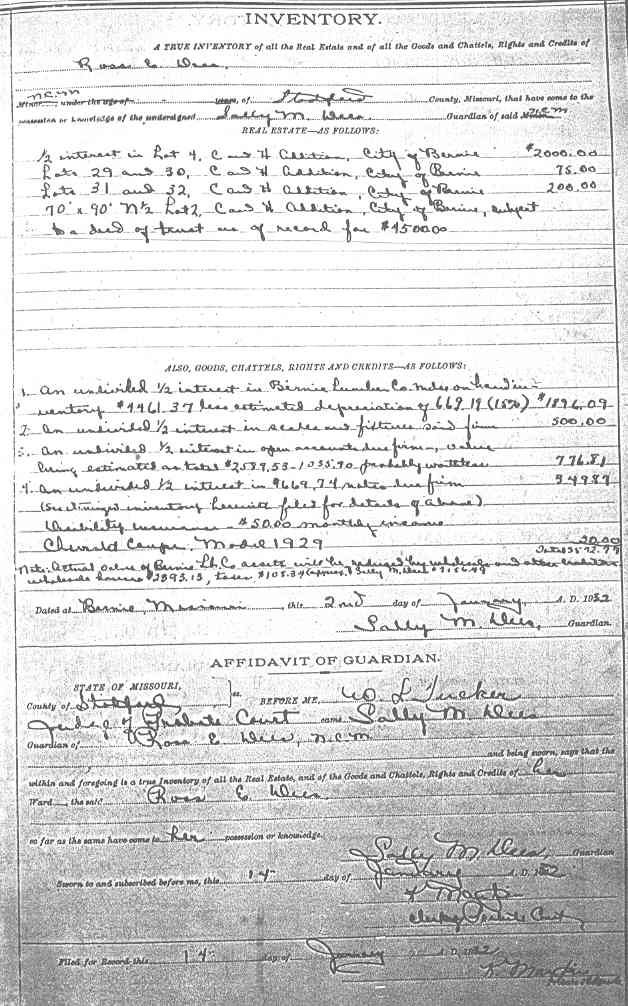 INVENTORY.
A TRUE INVENTORY of all the Real Estate and of all the Goods and Chattels, Rights and Credits of
Ross E Dees,
N.C.M
Minor under the age of years, of Stoddard County, Missouri, that have come to the
possession or knowledge of the undersigned Sally M. Dees Guardian of said Minor N.C.M
REAL ESTATE—AS FOLLOWS:
1/2 interest in Lot 4, C and H Addition, City of Bernie $2000.00
Lots 29 and 30, C and H Addition, City of Bernie 75.00
Lots 31 and 32, C and H Addition, City of Bernie 200.00
70' x 90' N 1/2 Lot 2, C and H Addition, City of Bernie, subject
to a deed of trust as of record for $1500.00
ALSO, GOODS, CHATTELS, RIGHTS AND CREDITS—AS FOLLOWS:
1. An undivided 1/2 interest in Bernie Lumber Co. mdse on hand in-
ventory $4461.37 less estimated depreciation of 669.19 (15%) $1896.09
2. An undivided 1/2 interest in scales and fixtures said firm 500.00
3. An undivided 1/2 interest in open accounts due firm, value
being estimated as total $2589.53-1035.90 probably worthless 776.81
4. An undivided 1/2 interest in notes due firm
(See itemized inventory herewith filed for details of above)
Disability insurance - $50.00 monthly income
Chevrolet Coupe, Model 1929 20.00
Note: Actual value of Bernie Lb. Co assets will be reduced by wholesale and other creditors
wholesale houses $3893.15, taxes $105.34
Dated at Bernie, Missouri, this 2nd day of January, A. D. 1932
Sally M. Dees, Guardian.
AFFIDAVIT OF GUARDIAN.
STATE OF MISSOURI,
County of Stoddard ss. BEFORE ME, W L Tucker
Judge of Probate Court came Sally M. Dees
Guardian of Ross E Dees, N.C.M
and being sworn, says that the
within and foregoing is a true Inventory of all the Real Estate, and of the Goods and Chattels, Rights and Credits of her
Ward, the said Ross E Dees
so far as the same have come to her possession or knowledge.
Sally M. Dees, Guardian
Sworn to and subscribed before me, this 14 day of January A. D. 1932
Filed for Record this 14 day of January A. D. 1932